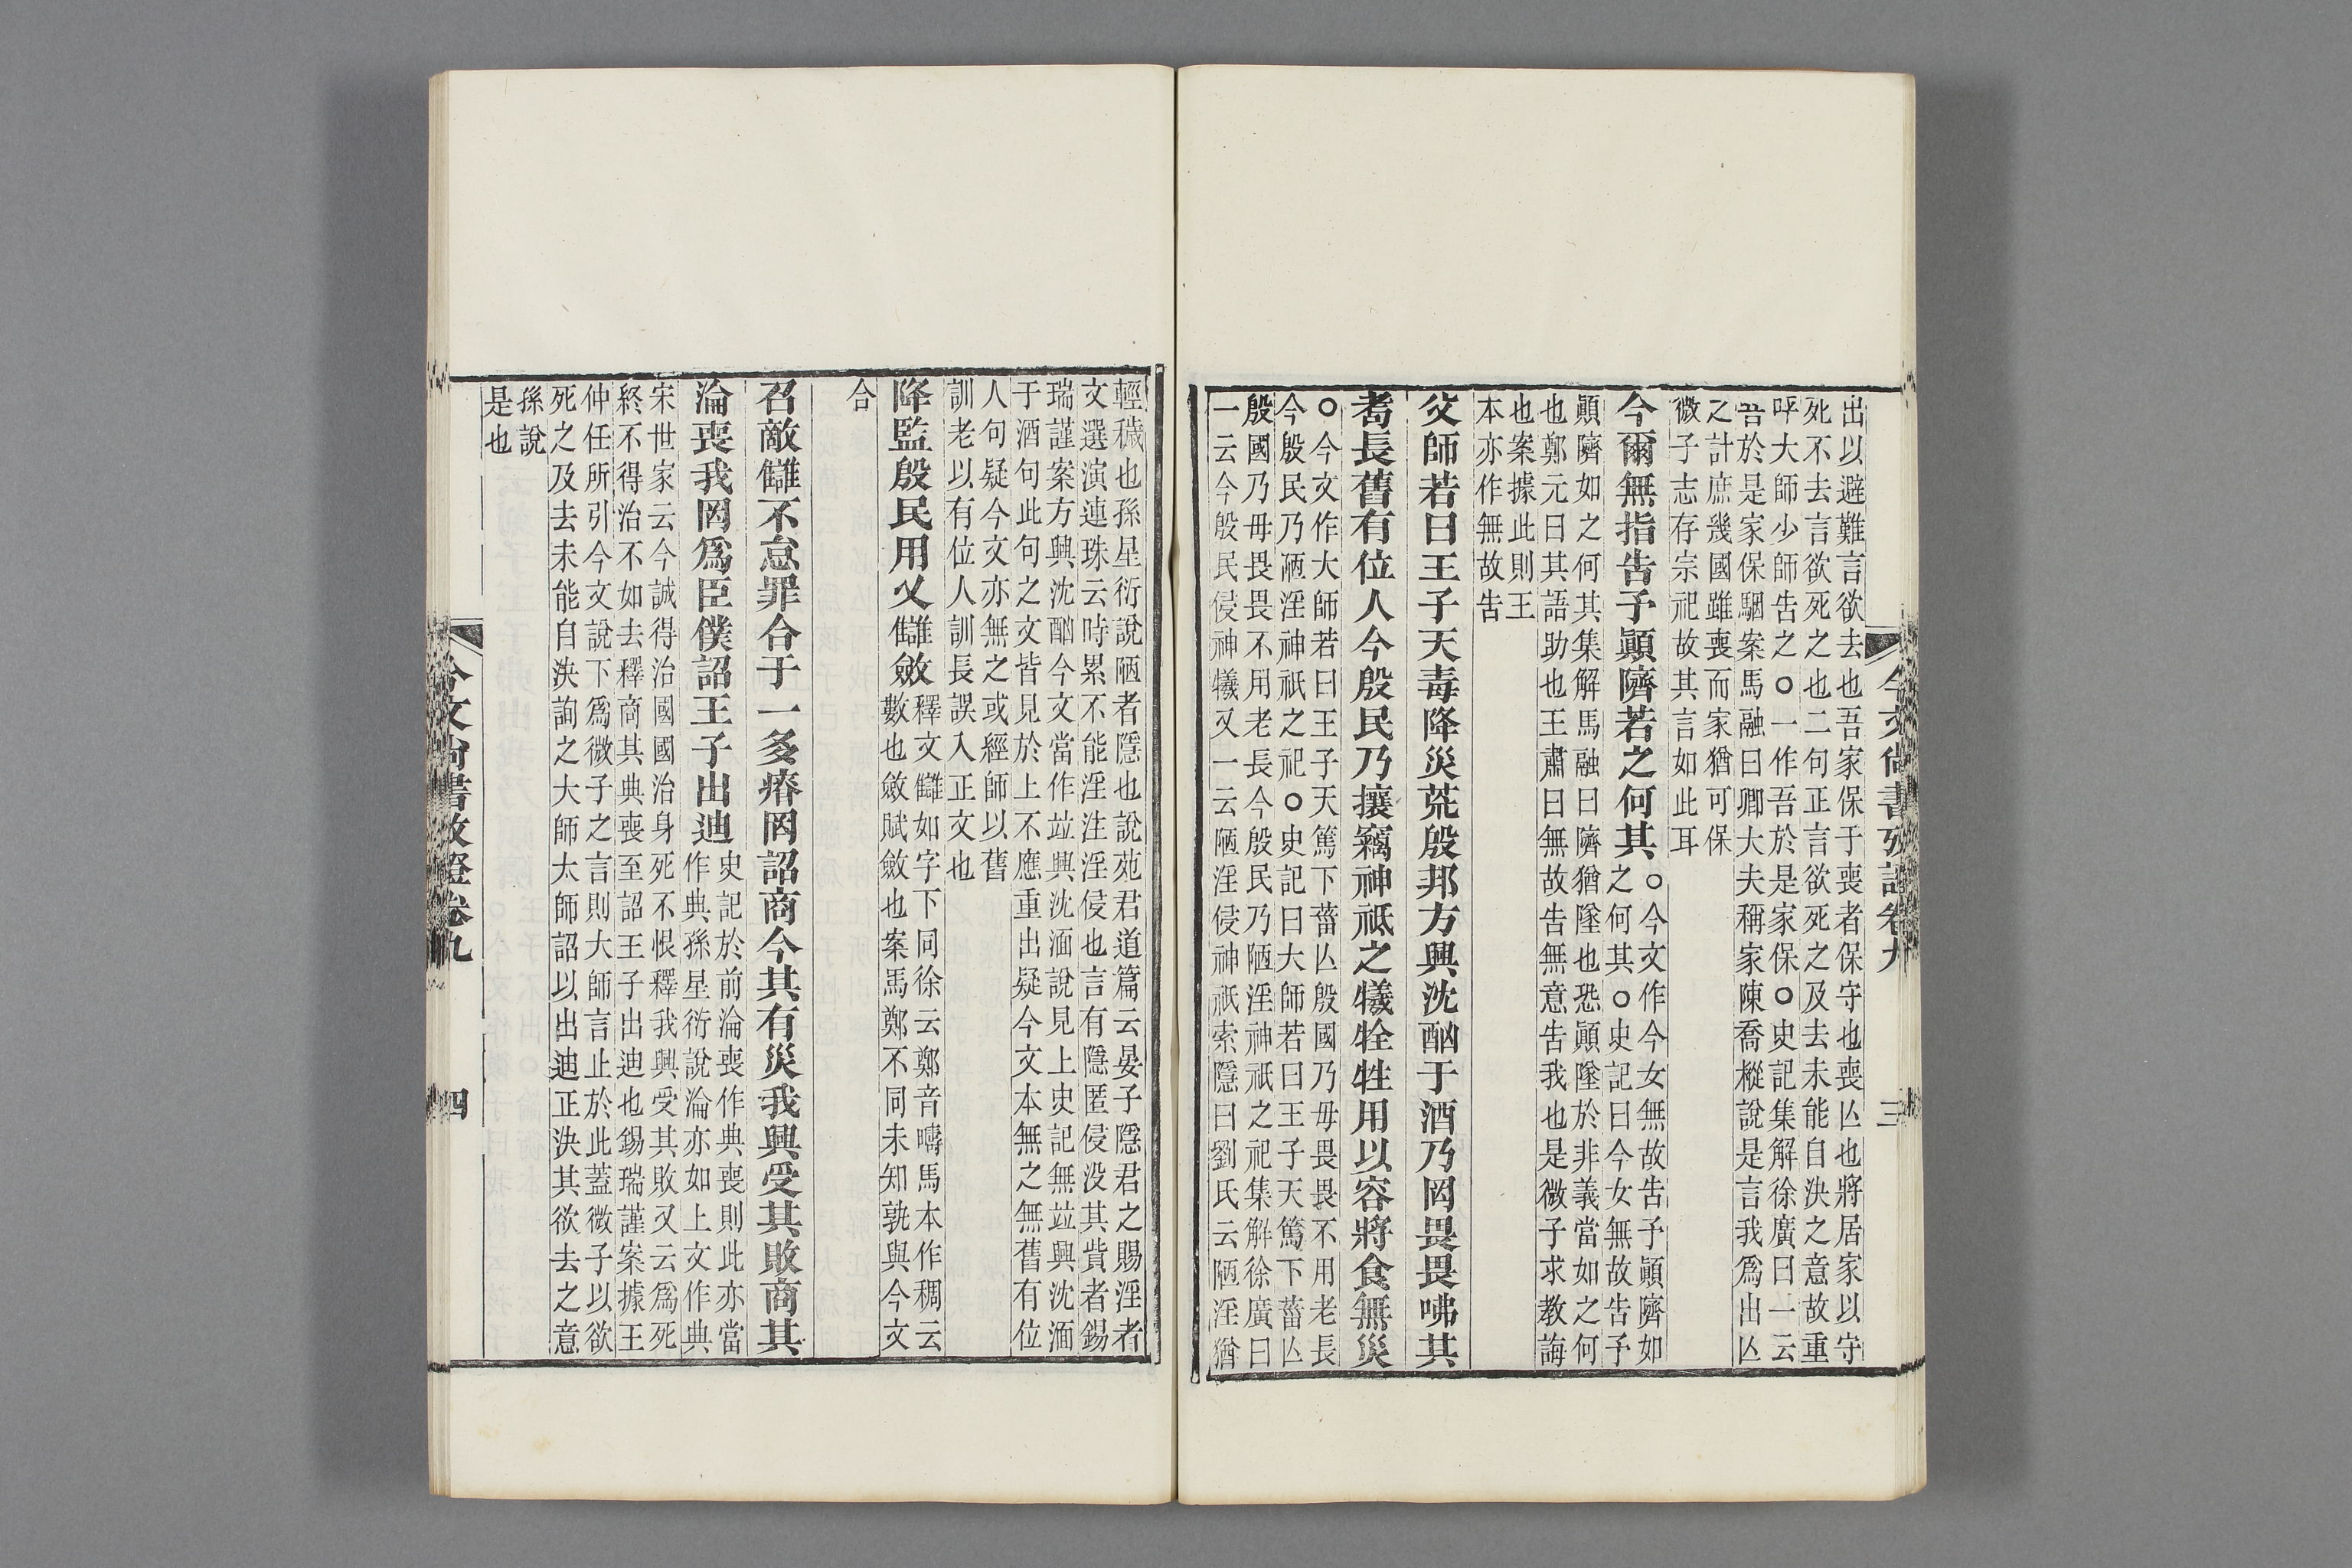 出以避難言欲去也吾家保于喪者保守也喪亾也將居家以守
死不去言欲死之也二句正言欲死之及去未能自決之意故重
呼大師少師告之○一作吾於是家保○史記集解徐廣曰一云
吾於是家保駰案馬融曰卿大夫稱家陳喬樅說是言我爲出亾
之計庶幾國雖喪而家猶可保
微子志存宗祀故其言如此耳
今爾無指告予顚隮若之何其
○今文作今女無故告予顚隮如
之何其○史記曰今女無故告予
顚隮如之何其集解馬融曰隮猶墜也恐顚墜於非義當如之何
也鄭元曰其語助也王肅曰無故告無意告我也是微子求教誨
也案據此則王
本亦作無故告
父師若曰王子天毒降災荒殷邦方興沈酗于酒乃罔畏畏咈其
耉長舊有位人今殷民乃攘竊神祗之犧牷牲用以容將食無災
○今文作大師若曰王子天篤下菑亾殷國乃毋畏畏不用老長
今殷民乃陋淫神祇之祀○史記曰大師若曰王子天篤下菑亾
殷國乃毋畏畏不用老長今殷民乃陋淫神祇之祀集解徐廣曰
一云今殷民侵神犧又一云陋淫侵神祇索隱曰劉氏云陋淫猶
今文尚書攷證卷九
三
輕穢也孫星衍說陋者隱也說苑君道篇云晏子隱君之賜淫者
文選演連珠云時累不能淫注淫侵也言有隱匿侵没其貲者錫
瑞謹案方興沈酗今文當作竝興沈湎說見上史記無竝興沈湎
于酒句此句之文皆見於上不應重出疑今文本無之無舊有位
人句疑今文亦無之或經師以舊
訓老以有位人訓長誤入正文也
降監殷民用乂讎斂
釋文讎如字下同徐云鄭音疇馬本作稠云
數也斂賦斂也案馬鄭不同未知孰與今文
合
召敵讎不怠罪合于一多瘠罔詔商今其有災我興受其敗商其
淪喪我罔爲臣僕詔王子出迪
史記於前淪喪作典喪則此亦當
作典孫星衍說淪亦如上文作典
宋世家云今誠得治國國治身死不恨釋我興受其敗又云爲死
終不得治不如去釋商其典喪至詔王子出迪也錫瑞謹案據王
仲任所引今文說下爲微子之言則大師言止於此蓋微子以欲
死之及去未能自決詢之大師太師詔以出迪正決其欲去之意
孫說
是也
今文尚書攷證卷九
四